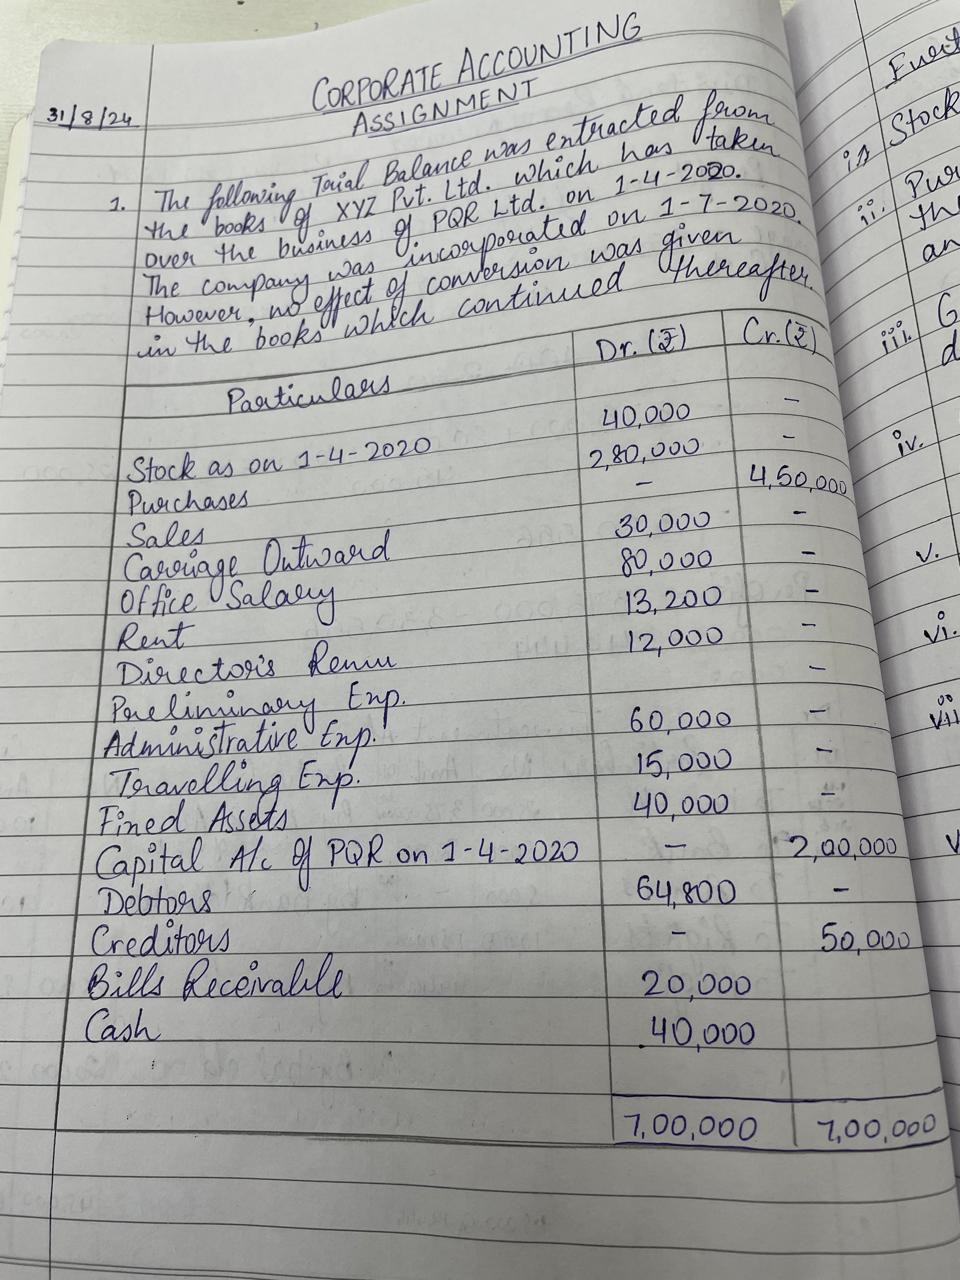 CORPORATE ACCOUNTING
ASSIGNMENT
31/8/24
1. The following Trial Balance was extracted from
the books of XYZ Pvt. Ltd. which has taken
over the business of PQR Ltd. on 1-4-2020.
The company was incorporated on 1-7-2020.
However, no effect of conversion was given
in the books which continued thereafter.
Particulars Dr.(₹) Cr.(₹)
Stock as on 1-4-2020 40,000 -
Purchases 2,80,000 -
Sales - 4,50,000
Carriage Outward 30,000 -
Office Salary 80,000 -
Rent 13,200 -
Director's Remu 12,000 -
Preliminary Exp. -
Administrative Exp. 60,000 -
Travelling Exp. 15,000 -
Fixed Assets 40,000 -
Capital A/c of PQR on 1-4-2020 - 2,00,000
Debtors 64,800 -
Creditors - 50,000
Bills Receivable 20,000
Cash 40,000
7,00,000 7,00,000
i) Stock
ii. Pur
the
an
iii. G
d
iv.
v.
vi.
vii